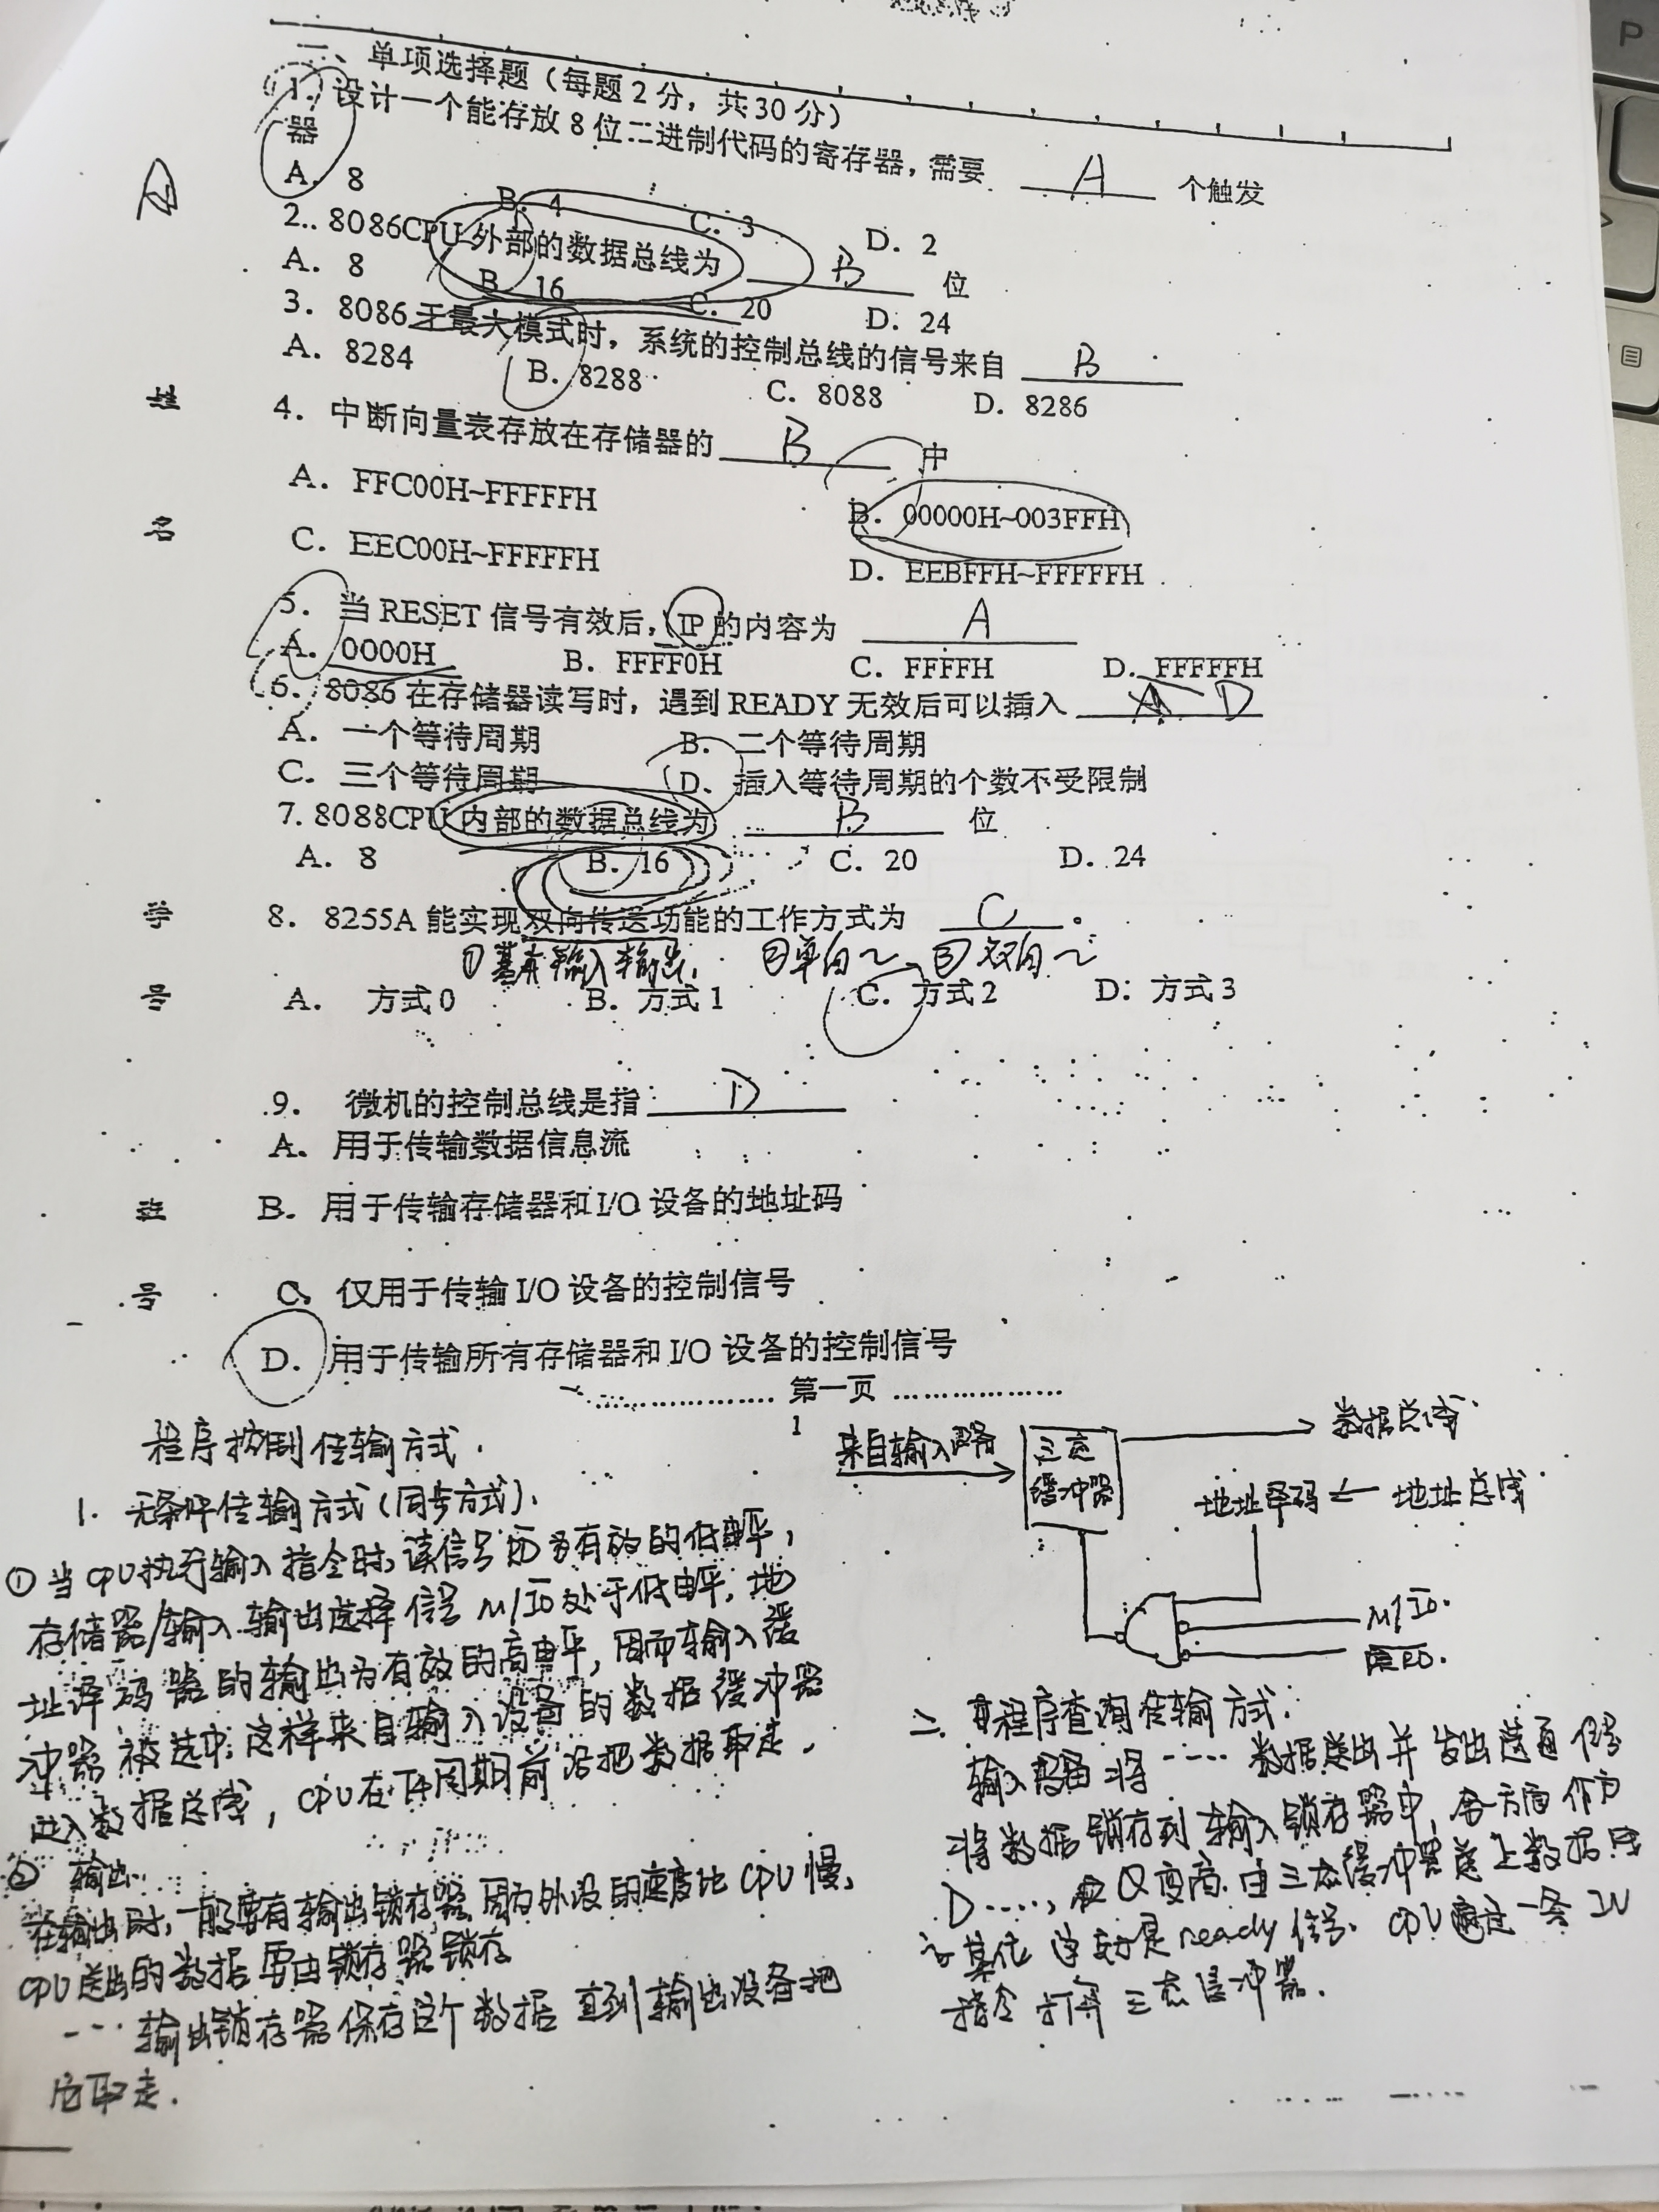 一、单项选择题（每题2分，共30分）
1. 设计一个能存放8位二进制代码的寄存器，需要 A 个触发
器
A. 8 B. 4 C. 3 D. 2
A
2.. 8086CPU外部的数据总线为 B 位
A. 8 B. 16 C. 20 D. 24
3. 8086 最大模式时，系统的控制总线的信号来自 B
A. 8284 B. 8288 C. 8088 D. 8286
姓
4. 中断向量表存放在存储器的 B 中
A. FFC00H~FFFFFH B. 00000H~003FFH
名
C. EEC00H~FFFFFH D. EEBFFH~FFFFFH
5. 当RESET信号有效后，IP的内容为 A
A. 0000H B. FFFF0H C. FFFFH D. FFFFFH
6. 8086在存储器读写时，遇到READY无效后可以插入 D
A. 一个等待周期 B. 二个等待周期
C. 三个等待周期 D. 插入等待周期的个数不受限制
7. 8088CPU内部的数据总线为 B 位
A. 8 B. 16 C. 20 D. 24
学
8. 8255A能实现双向传送功能的工作方式为 C 。
①基本输入输出. ②单向~ ③双向~
号
A. 方式0 B. 方式1 C. 方式2 D: 方式3
9. 微机的控制总线是指 D
A. 用于传输数据信息流
班
B. 用于传输存储器和I/O设备的地址码
号
C. 仅用于传输I/O设备的控制信号
D. 用于传输所有存储器和I/O设备的控制信号
第一页
1
程序控制传输方式.
1. 无条件传输方式(同步方式).
①当CPU执行输入指令时,读信号 为有效的低电平,
存储器/输入输出选择信号M/IO处于低电平,地
址译码器的输出为有效的高电平,因而输入缓
冲器被选中,这样来自输入设备的数据缓冲器
进入数据总线,CPU在T4周期前沿把数据取走.
② 输出
在输出时,一般要有输出锁存器,因为外设的速度比CPU慢,
CPU送出的数据要由锁存器锁存
---输出锁存器保存这个数据直到输出设备把
它取走.
来自输入设备
三态
缓冲器
数据总线
地址译码 ← 地址总线
M/IO.
RD.
二. 程序查询传输方式:
输入设备将 ---- 数据送出并发出选通信号
将数据锁存到输入锁存器中,另一方面作为
D...., Q变高.由三态缓冲器送上数据线
其他 是ready信号. CPU通过一条IN
指令打开三态缓冲器.